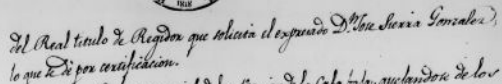 del Real titulo de Regidor que solicita el expresado Dn. Jose Sierra Gonzalez,
lo que se dì por certificacion.
de los